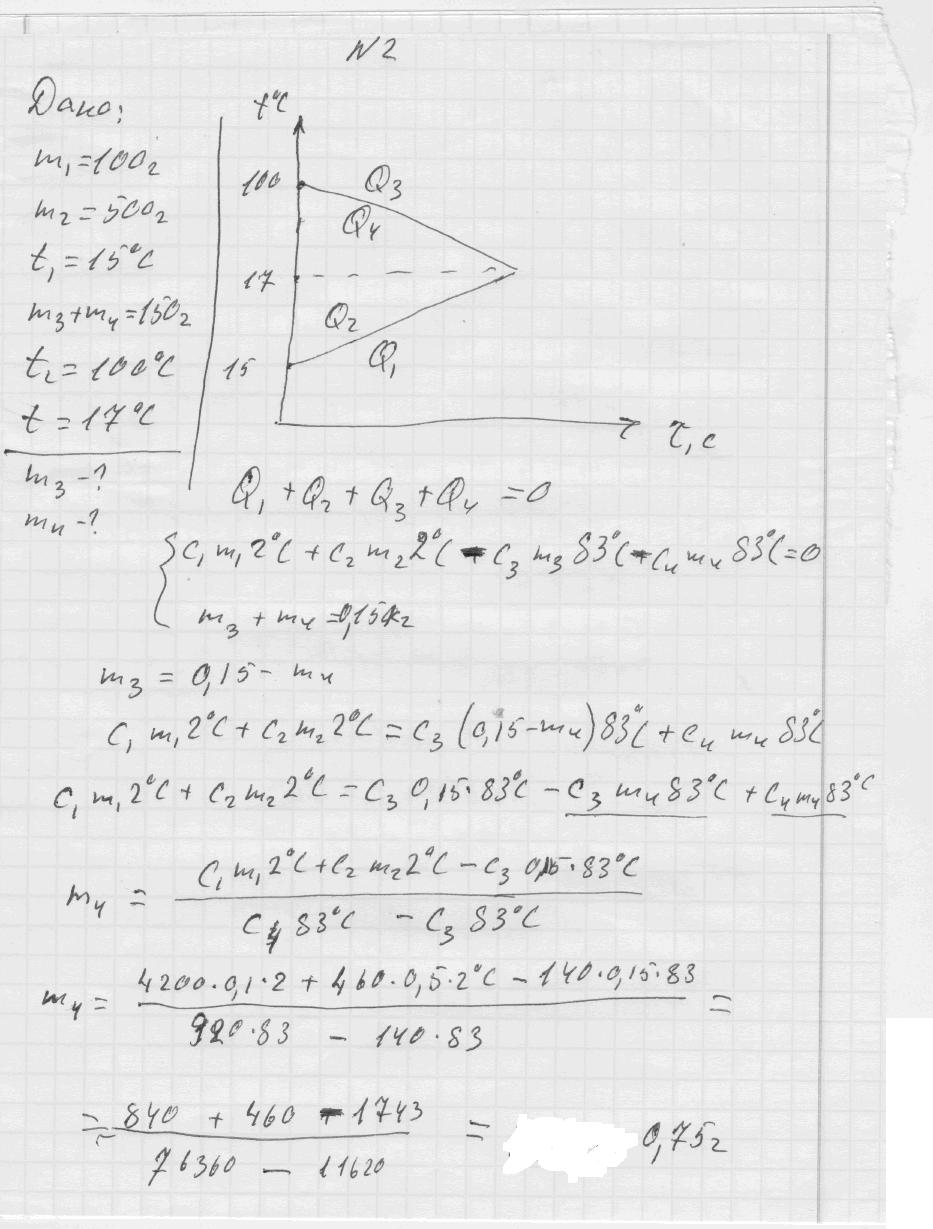 N2
Дано:
m₁=100г
m₂=500г
t₁=15°C
m₃+m₄=150г
t₂=100°C
t=17°C
m₃-?
m₄-?
t°C
100
17
15
Q₃
Q₄
Q₂
Q₁
τ,c
Q₁+Q₂+Q₃+Q₄=0
{c₁m₁2°C+c₂m₂2°C-c₃m₃83°C-c₄m₄83°C=0
m₃+m₄=0,15кг
m₃=0,15-m₄
c₁m₁2°C+c₂m₂2°C=c₃(0,15-m₄)83°C+c₄m₄83°C
c₁m₁2°C+c₂m₂2°C=c₃0,15·83°C-c₃m₄83°C+c₄m₄83°C
m₄=
c₁m₁2°C+c₂m₂2°C-c₃0,15·83°C
c₄83°C-c₃83°C
m₄=
4200·0,1·2+460·0,5·2°C-140·0,15·83
=
920·83-140·83
=
840+460-1743
76360-11620
= 0,75г